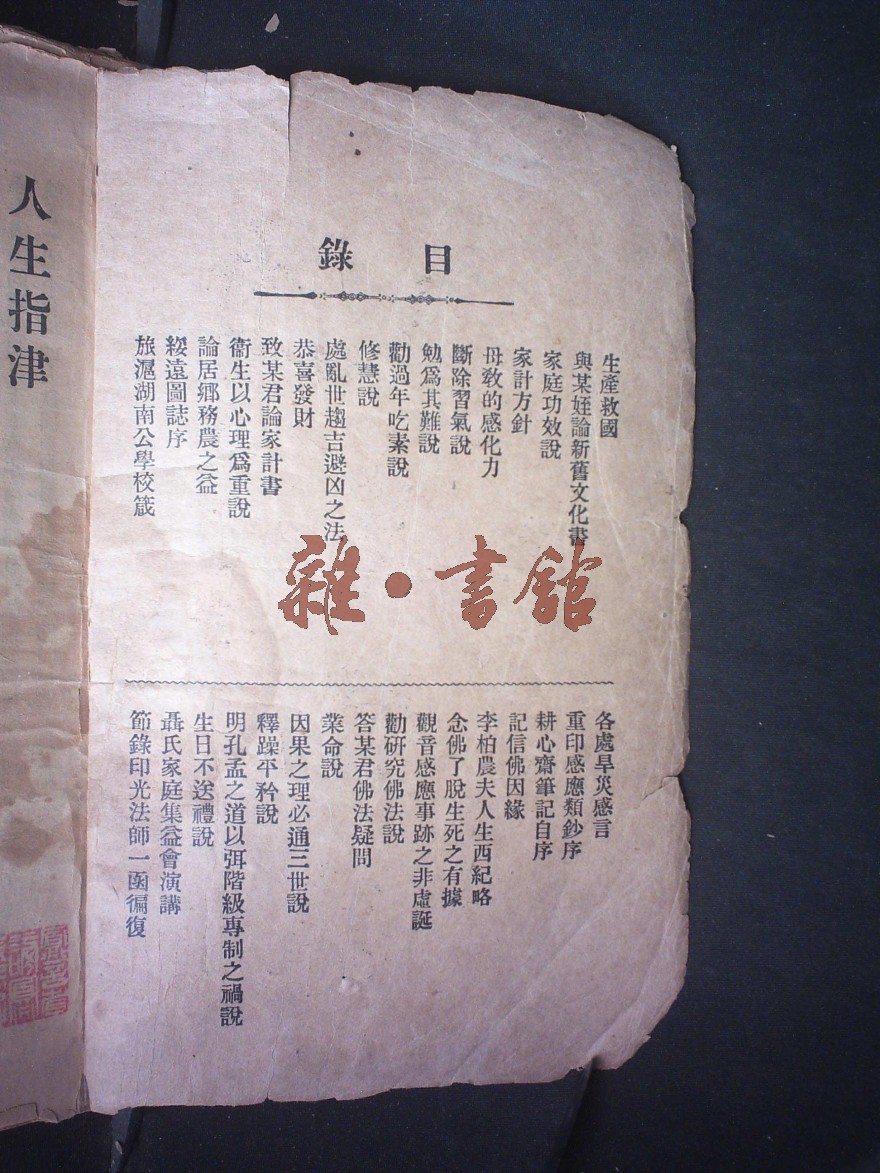 目錄
生產救國
與某姪論新舊文化書
家庭功效說
家計方針
母教的感化力
斷除習氣說
勉爲其難說
勸過年吃素說
修慧說
處亂世趨吉避凶之法
恭喜發財
致某君論家計書
衞生以心理爲重說
論居鄉務農之益
綏遠圖誌序
旅滬湖南公學校箴
各處旱災感言
重印感應類鈔序
耕心齋筆記自序
記信佛因緣
李柏農夫人生西紀略
念佛了脫生死之有據
觀音感應事跡之非虛誕
勸研究佛法說
答某君佛法疑問
業命說
因果之理必通三世說
釋躁平矜說
明孔孟之道以弭階級專制之禍說
生日不送禮說
聶氏家庭集益會演講
節錄印光法師一函徧復
人生指津
雜·書館